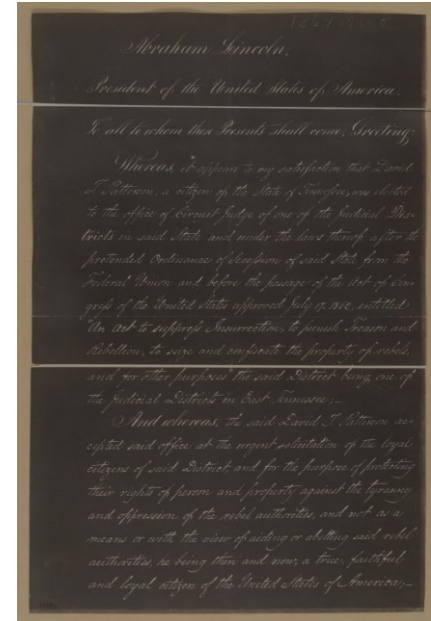 Abraham Lincoln,
President of the United States of America,
To all to whom these Presents shall come, Greeting;
Whereas, it appears to my satisfaction that David
T. Patterson, a citizen of the State of Tennessee, was elected
to the office of Circuit Judge of one of the Judicial Dis-
tricts in said State and under the laws thereof, after the
pretended Ordinance of Secession of said State from the
Federal Union and before the passage of the Act of Con-
gress of the United States approved July 17. 1862, entitled
"An Act to suppress Insurrection, to punish Treason and
Rebellion, to seize and confiscate the property of rebels,
and for other purposes" the said District being one of
the Judicial Districts in East Tennessee;—
And whereas, the said David T. Patterson ac-
cepted said office at the urgent solicitation of the loyal
citizens of said District and for the purpose of protecting
their rights of person and property against the tyranny
and oppression of the rebel authorities, and not as a
means or with the view of aiding or abetting said rebel
authorities, he being then and now, a true, faithful
and loyal citizen of the United States of America;—